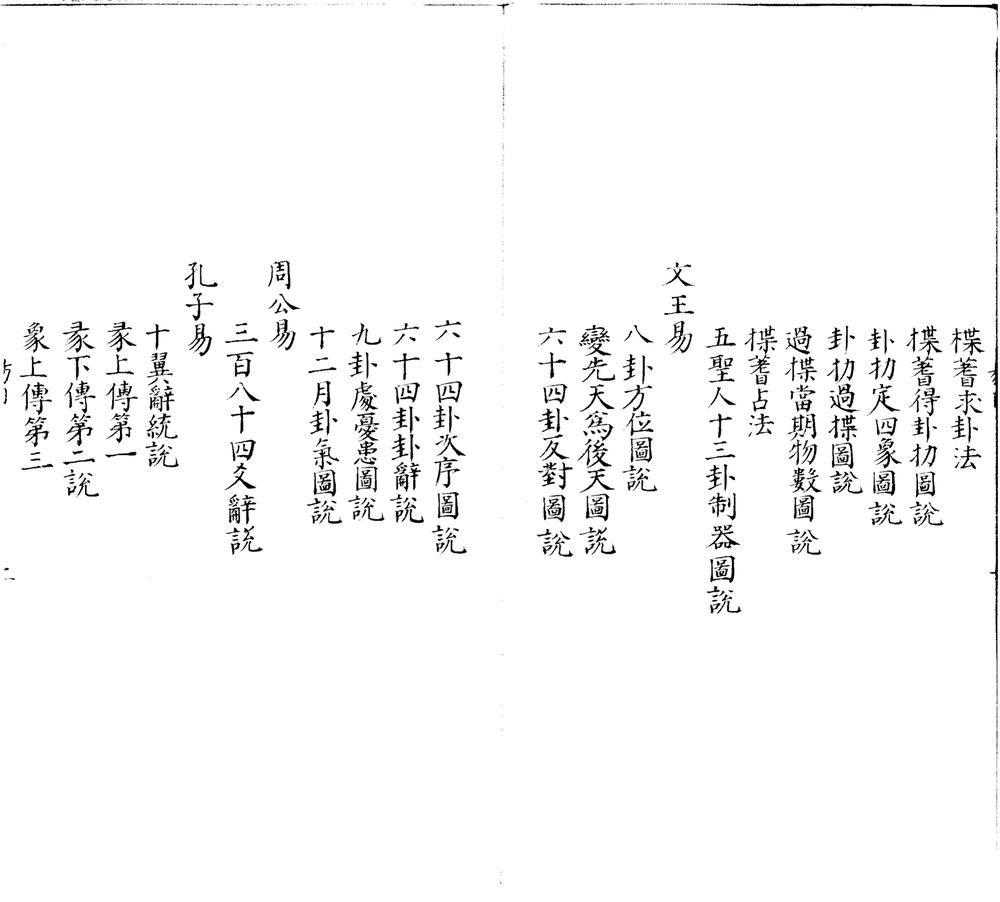 揲蓍求卦法
揲蓍得卦扐圖說
卦扐定四象圖說
卦扐過揲圖說
過揲當期物數圖說
揲蓍占法
五聖人十三卦制器圖說
文王易
八卦方位圖說
變先天為後天圖說
六十四卦反對圖說
六十四卦次序圖說
六十四卦卦辭說
九卦處憂患圖說
十二月卦氣圖說
周公易
三百八十四爻辭說
孔子易
十翼辭統說
彖上傳第一
彖下傳第二說
象上傳第三